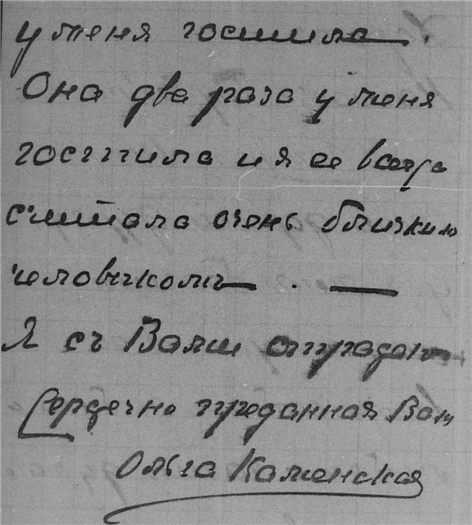 у меня гостила.
Она два раза у меня
гостила и я ее всегда
считала очень близким
человѣкомъ. —
Я съ Вами страдаю
Сердечно преданная Вам
Ольга Каменская